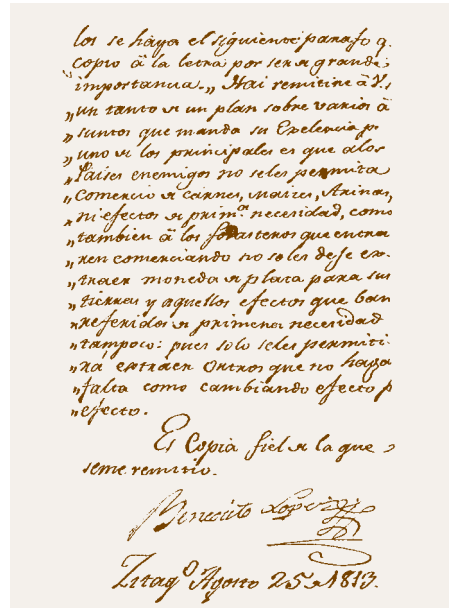 los se haya el siguiente parrafo q.
copio â la letra por ser de grande
importancia. „ Hai remitire â V.s
„ un tanto de un plan sobre varios â
„ suntos que manda su Exelencia p.
„ uno de los principales es que alos
„ Paises enemigos no seles permita
„ comercio de carnes, maizes, Arinas,
„ ni efectos de prim.a necesidad, como
„ tambien â los forasteros que entra
„ ren comerciando no seles deje ex-
„ traer moneda de plata para sus
„ tierras y aquellos efectos que ban
„ referidos de primera necesidad
„ tampoco: pues solo seles permiti-
„ rá extraer Ontros que no haga
„ falta como cambiando efecto p
„ efecto.
Es Copia fiel de la que
seme remitio.
Benedicto Lopez
Zitaq.o Agosto 25 de 1813.